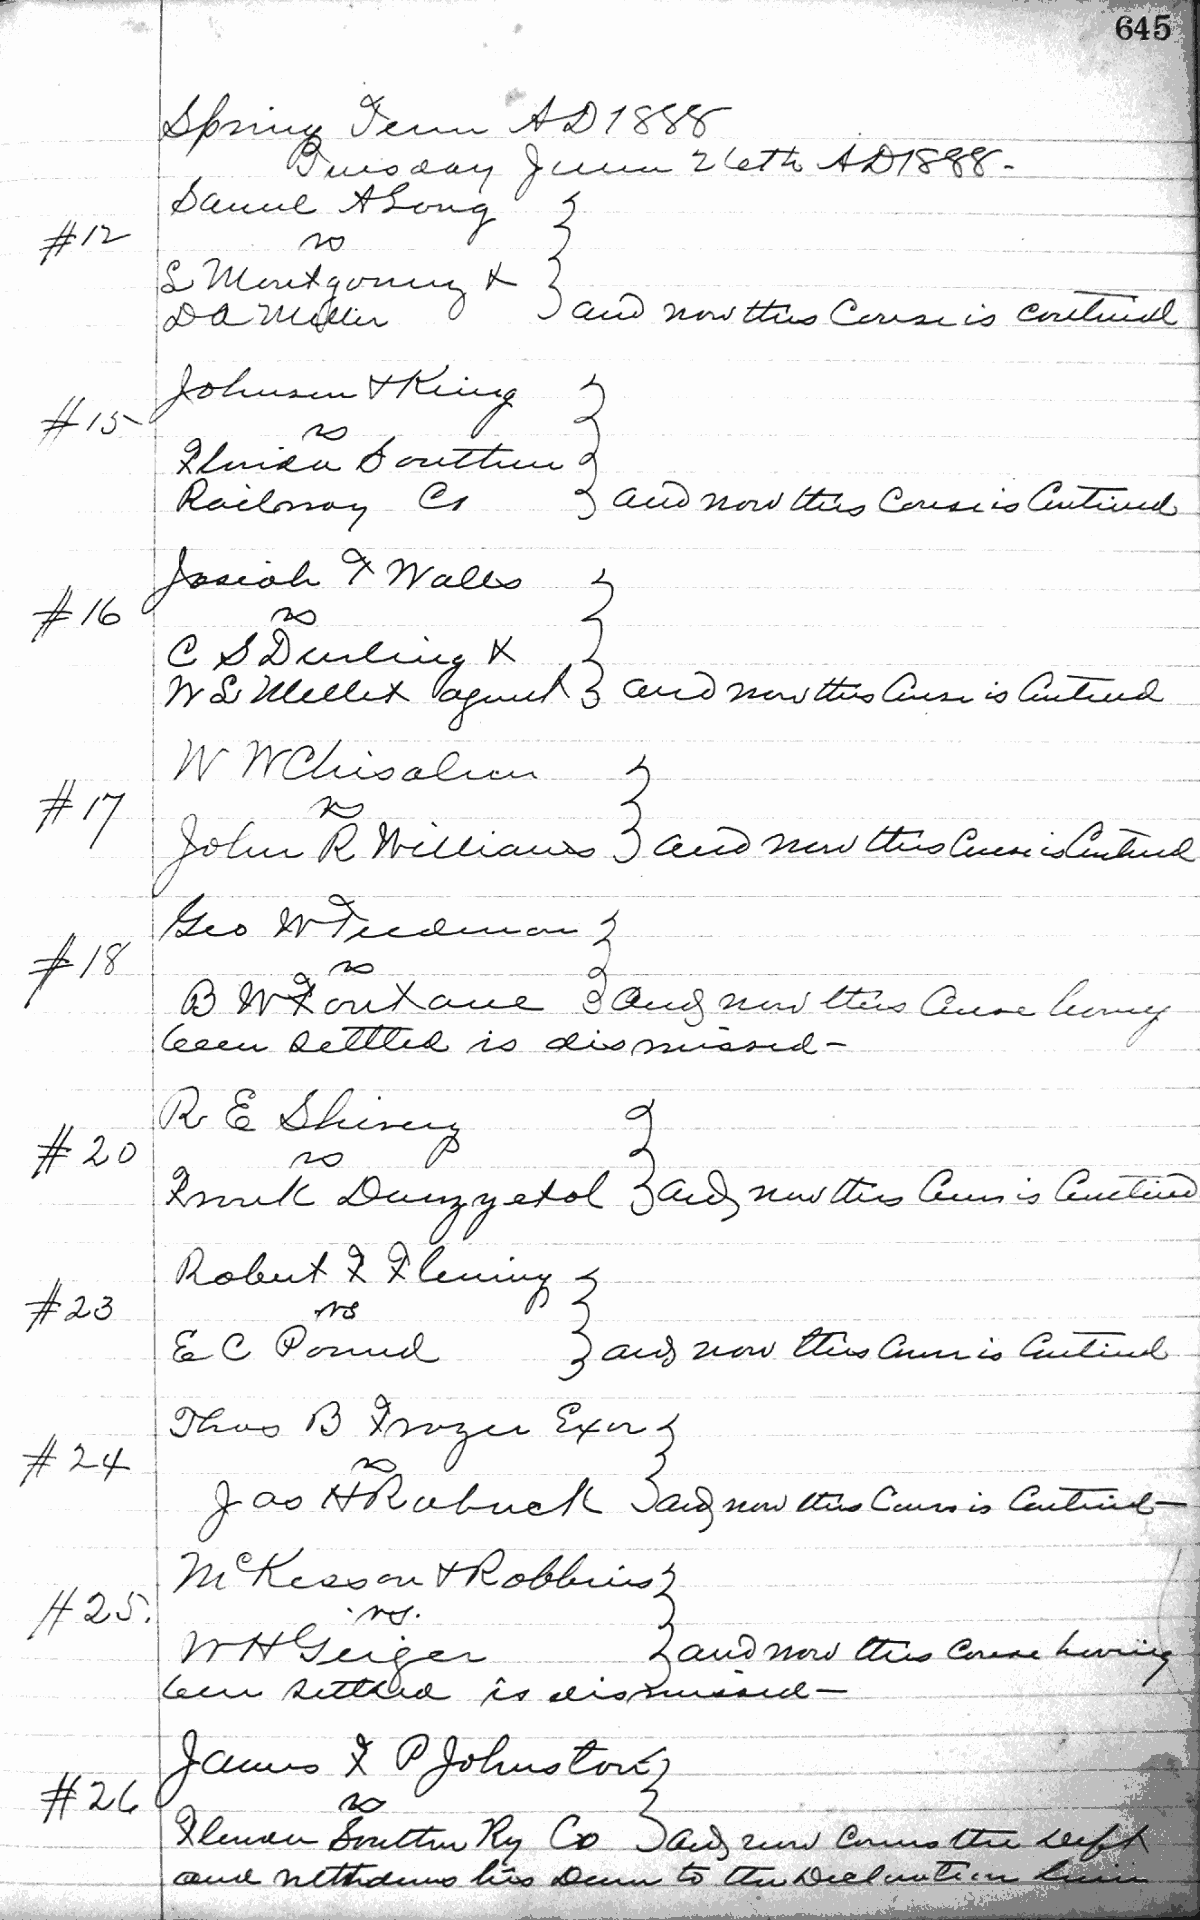 645
Spring Term AD 1888
Tuesday June 26th AD 1888-
Samuel A Long
#12
vs
L Montgomery &
D A Miller and now this Cause is continued
Johnson & King
#15
vs
Florida Southern
Railway Co and now this Cause is Continued
Josiah T Walls
#16
vs
C S Durling &
W L Mellet agent and now this Cause is Continued
W W Chisolm
#17
vs
John R Williams and now this Cause is Continued
Geo W Teedman
#18
vs
B W Fontane and now this Cause having
been settled is dismissed-
R E Shivery
#20
vs
Frank Danzy et al and now this Cause is Continued
Robert F Fleming
#23
vs
E C Pound and now this Cause is Continued
Thos B Frazer Exor
#24
vs
Jas H Rabuck and now this Cause is Continued-
McKesson & Robbins
#25.
vs.
W H Geiger and now this Cause having
been settled is dismissed-
James F P Johnston
#26
vs
Florida Southern Ry Co and now comes the Deft
and withdraws his Dem to the Declaration herein